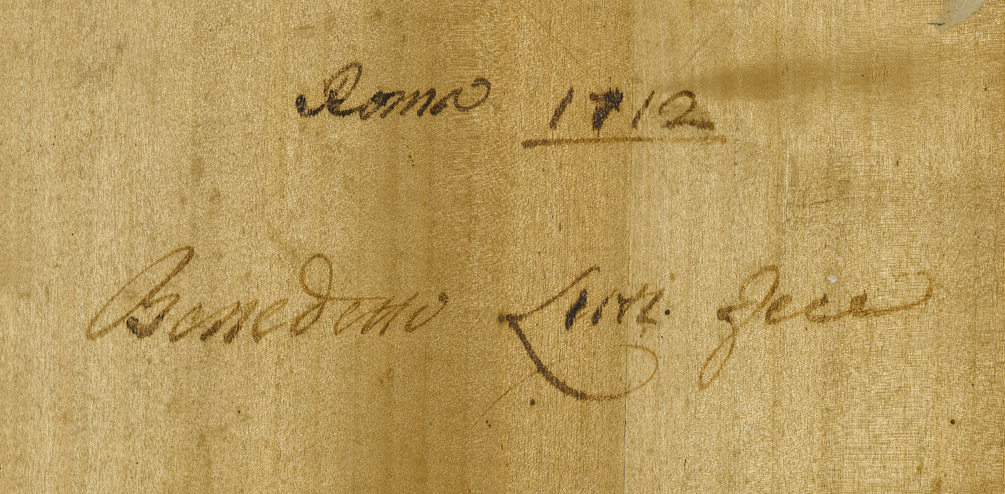 Roma 1712
Benedetto Luti. Fece